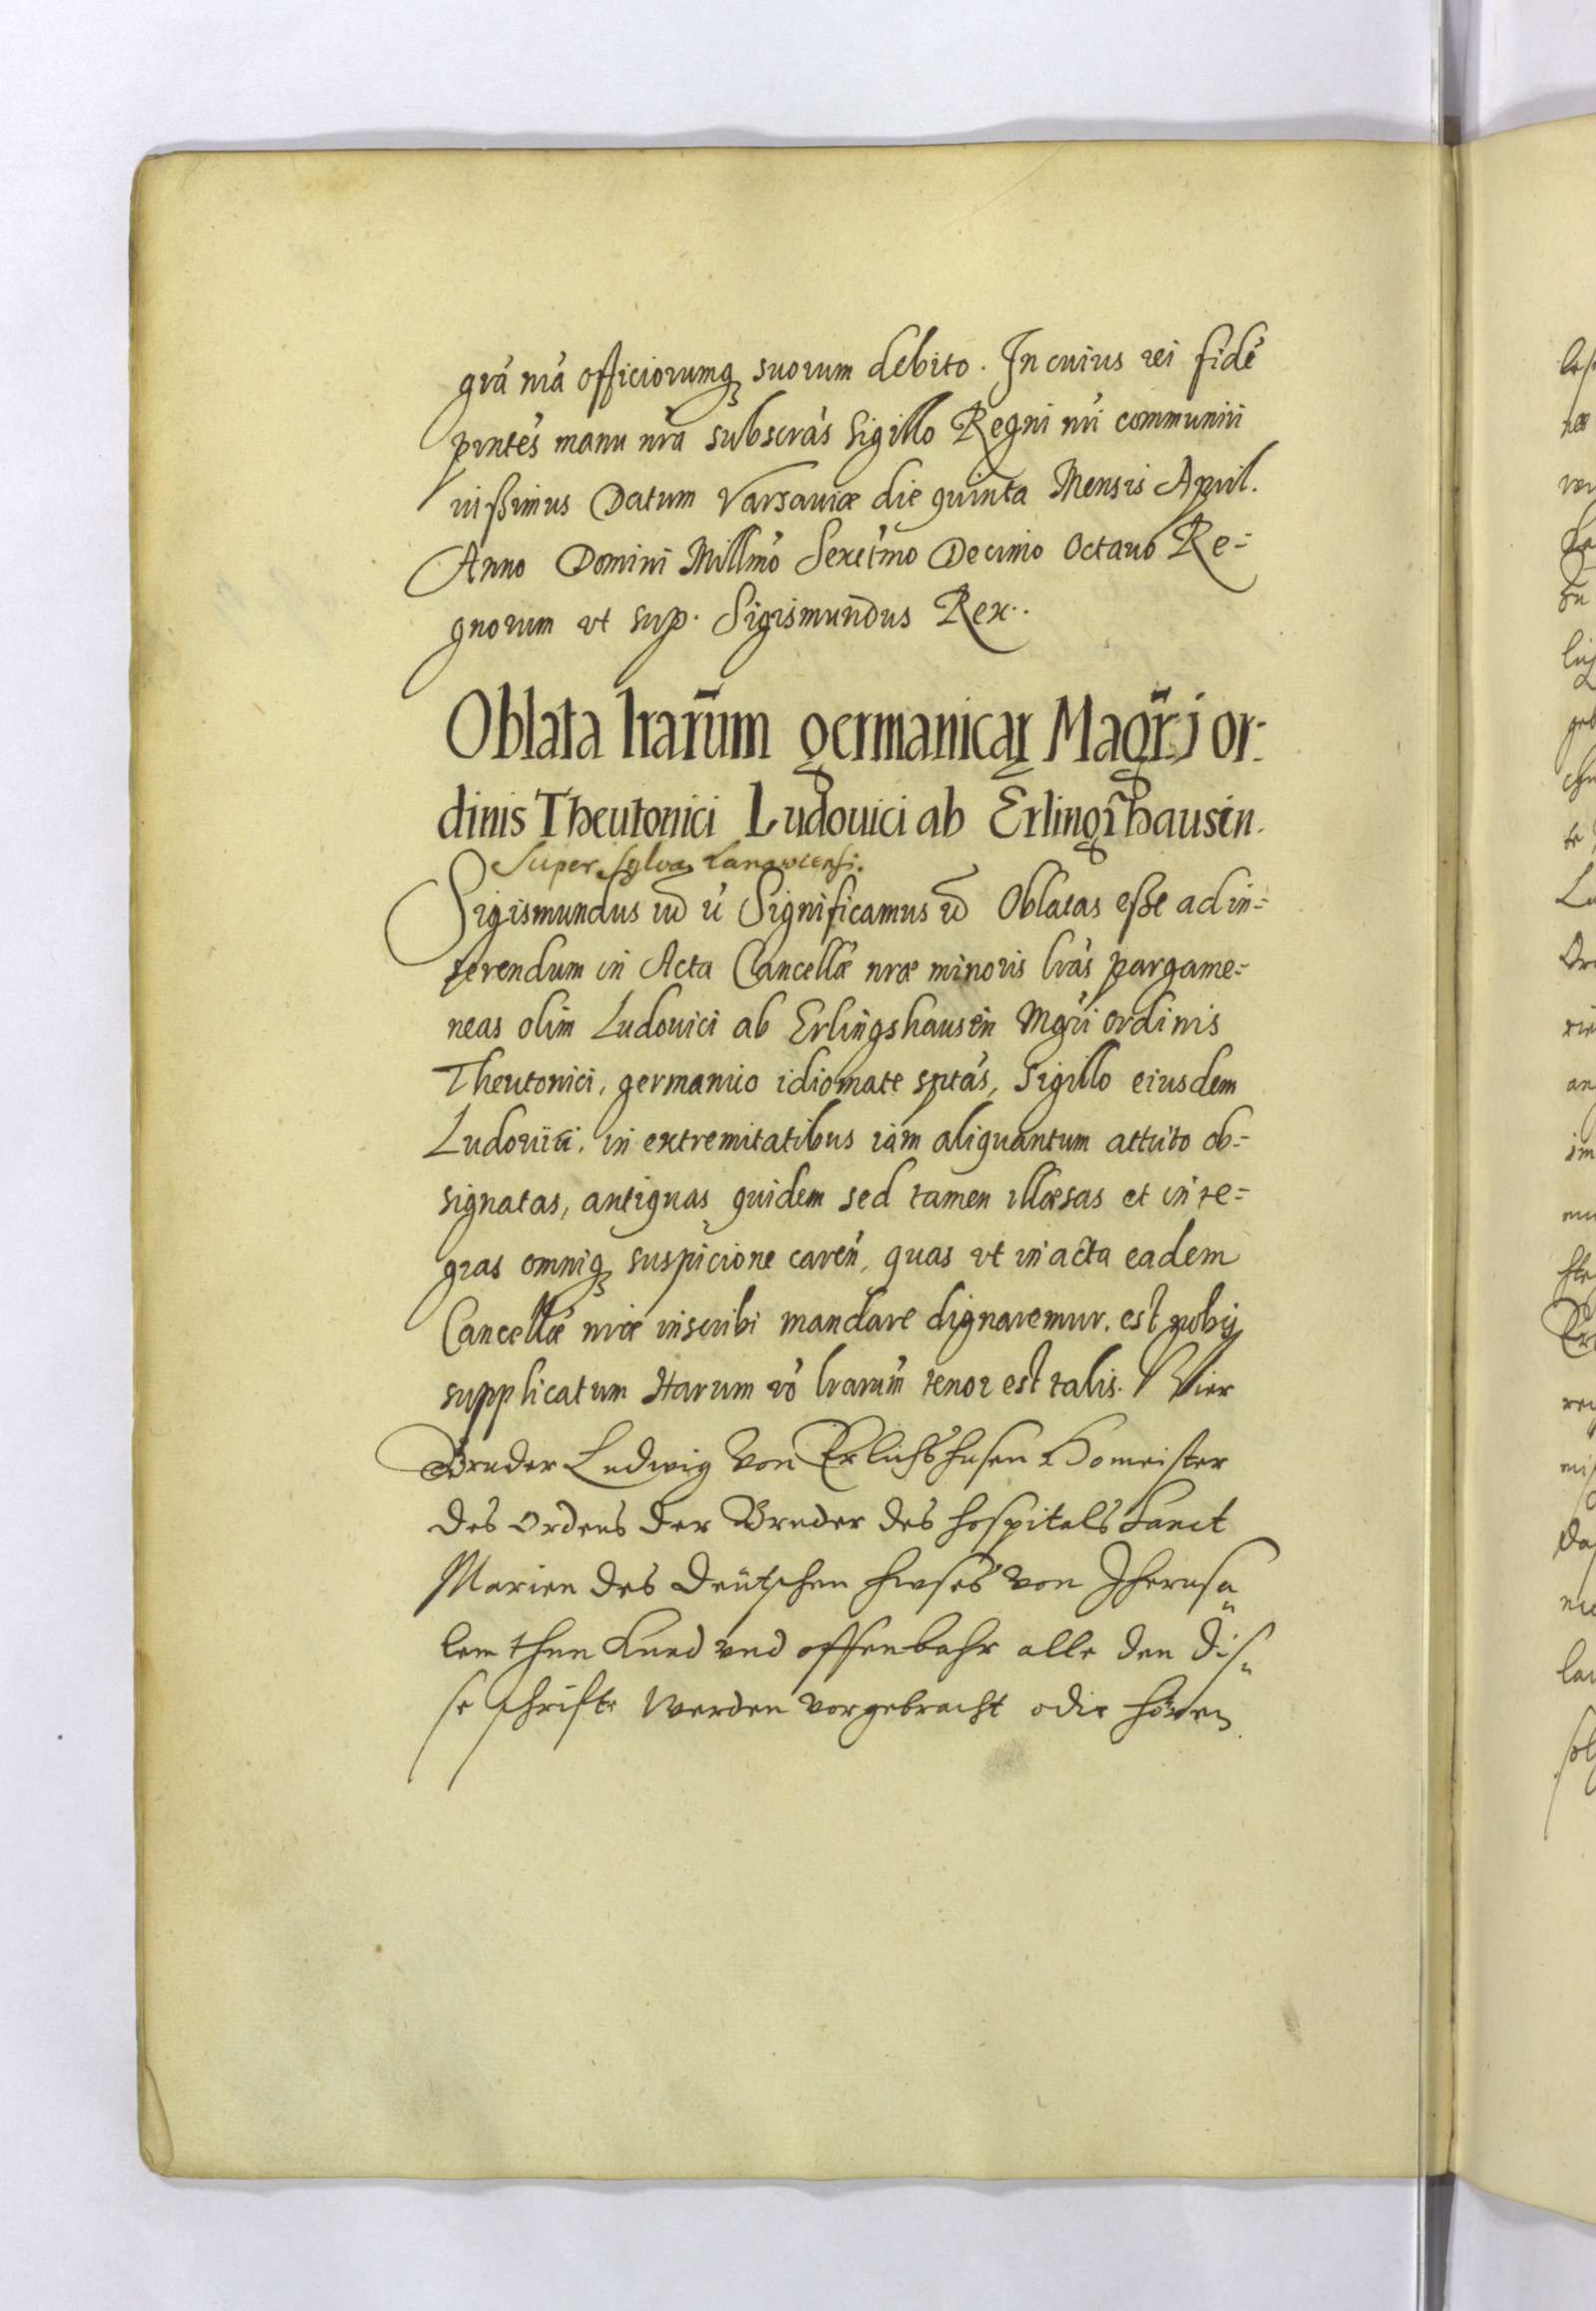 grã nrã officiorumq suorum debito. In cuius rei fidẽ
prntẽs manu nrã subscrãs Sigillo Regni nri communiri
iußimus Datum Varsauiæ die quinta Mensis April.
Anno Domini Millmõ Sexctmõ Decimo Octauo Re=
gnorum vt sup. Sigismundus Rex..
Oblata lrarũm germanicar Magrj or:
dinis Theutonici Ludouici ab Erlingßhausen.
Super sylva
Sigismundus Significamus Oblatas eße ad in=
serendum in Acta Cancellæ nræ minoris lrãs pargame=
neas olim Ludouici ab Erlingshausen Mgri ordinis
Theutonici, germanico idiomate sptãs, Sigillo eiusdem
Ludouici, in extremitatibus iam aliquantum attrito ob=
signatas, antiquas quidem sed tamen illæsas et inte=
gras omniq suspicione carẽn, quas vt in acta eadem
Cancellæ nræ inscribi mandare dignaremur, est nobis
supplicatum Harum võ lrarũm tenor est talis. Wier
Bruder Ludwig von Erlichshusen Homeister
des ordens der Bruder des hospitals Sanct
Marien des Deütschen hwses von Jherusa„
lem thun kund vnd offenbahr alle den dis„
se schrifte werden vorgebracht odir hören